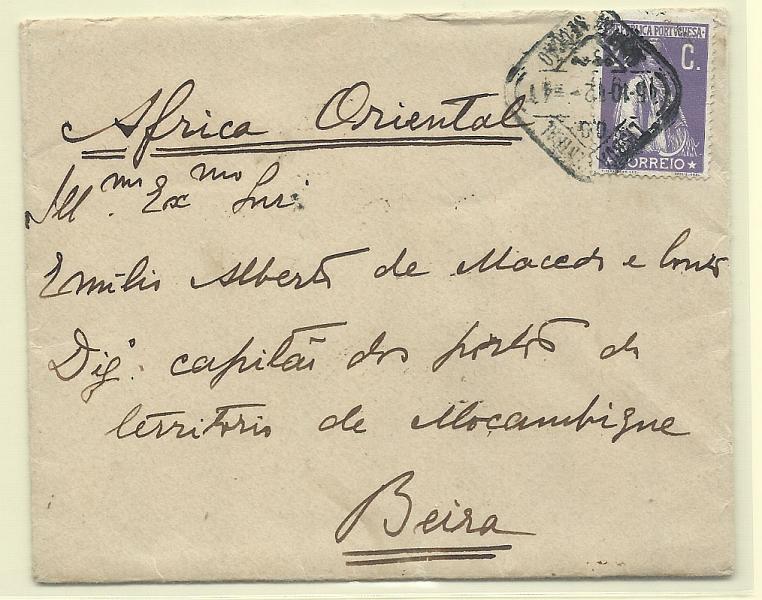 REPUBLICA PORTUGUESA
C.
CORREIO
Africa Oriental
Ill.mo Exmo Snr.
Emilio Alberto de Macedo e Couto
Dig.o capitão dos portos do
territorio de Moçambique
Beira